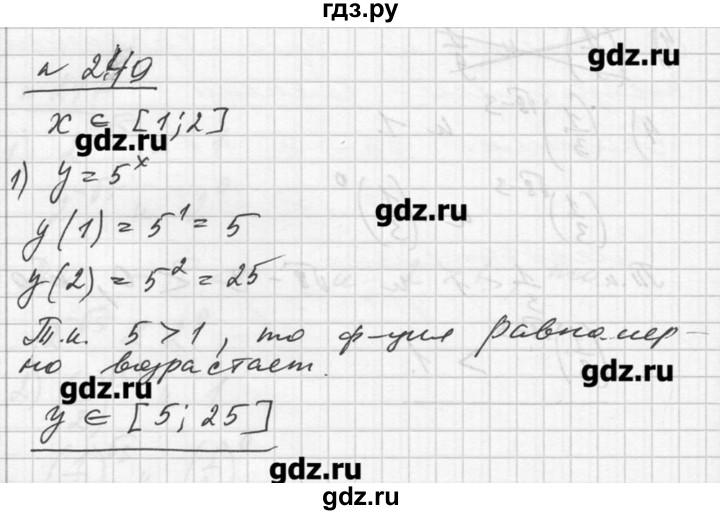 гдз.ру
gdz.ru
№ 249
x ∈ [1; 2]
gdz.ru
1) y = 5^x
gdz.ru
y(1) = 5^1 = 5
y(2) = 5^2 = 25
Т.к. 5 > 1, то ф-ция равномер-
но возрастает.
gdz.ru
gdz.ru
y ∈ [5; 25]
gdz.ru
gdz.ru